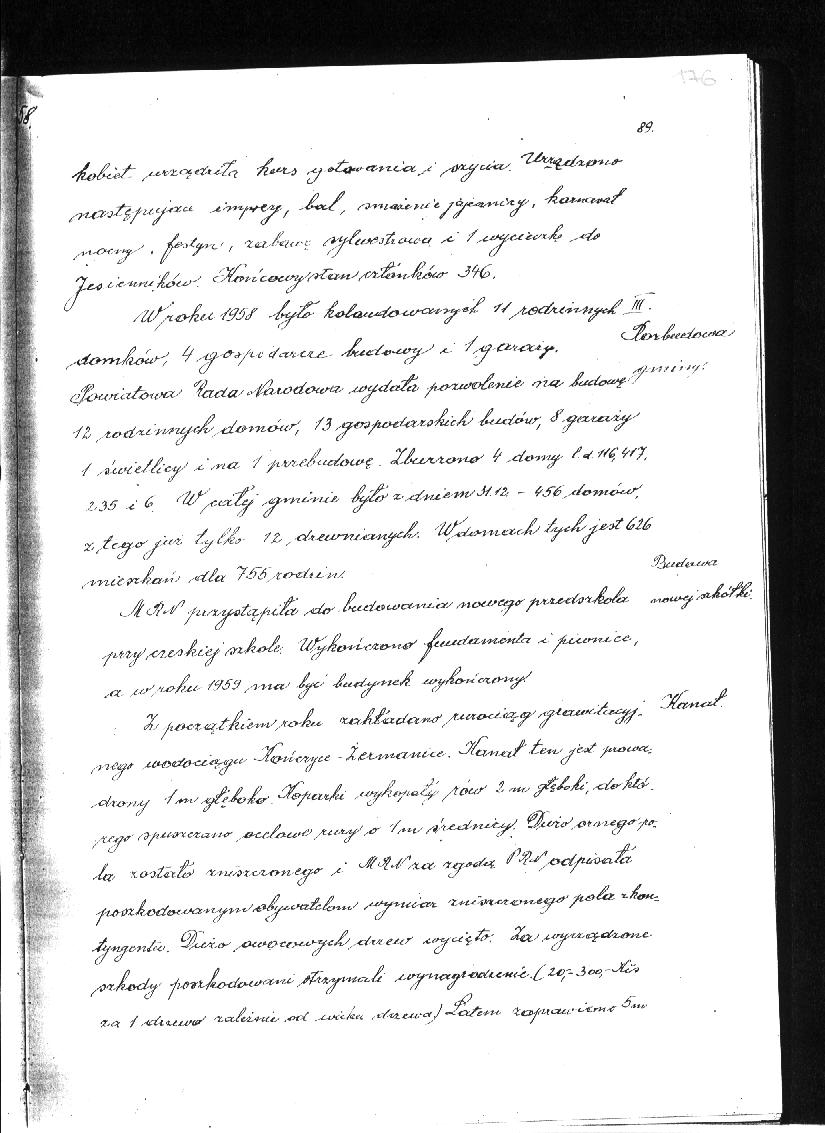 176
58.
89.
kobiet urządziła kurs gotowania i szycia. Urządzono
następujące imprezy, bal, smażenie jajecznicy, karnawał
nocny, festyn, zabawę sylwestrową i 1 wycieczkę do
Jesienników. Końcowy stan członków 346.
W roku 1958 było kolaudowanych 11 rodzinnych III.
domków, 4 gospodarcze budowy i 1 garaży. Rozbudowa
Powiatowa Rada Narodowa wydała pozwolenie na budowę gminy.
12 rodzinnych domów, 13 gospodarskich budów, 8 garaży
1 świetlicy i na 1 przebudowę. Zburzono 4 domy l.d. 116, 417,
235 i 6. W całej gminie było z dniem 31.12. – 456 domów,
z tego już tylko 12 drewnianych. W domach tych jest 626
mieszkań dla 755 rodzin.
Budowa
MRN przystąpiła do budowania nowego przedszkola nowej szkółki.
przy czeskiej szkole. Wykończono fundamenta i piwnice,
a w roku 1959 ma być budynek wykończony.
Z początkiem roku zakładano rurociąg grawitacyj- Kanał.
nego wodociągu Kończyce - Żermanice. Kanał ten jest prowa-
dzony 1 m głęboko. Koparki wykopały rów 2 m głęboki, do któ-
rego spuszczano ocelowe rury o 1 m średnicy. Dużo ornego po-
la zostało zniszczonego i MRN za zgodą PRN odpisała
poszkodowanym obywatelom wymiar zniszczonego pola z kon-
tyngentu. Dużo owocowych drzew wycięto. Za wyrządzone
szkody poszkodowani otrzymali wynagrodzenie (20,- 300,- Kčs
za 1 drzewo zależnie od wieku drzewa) Latem zaprawiono 5 m